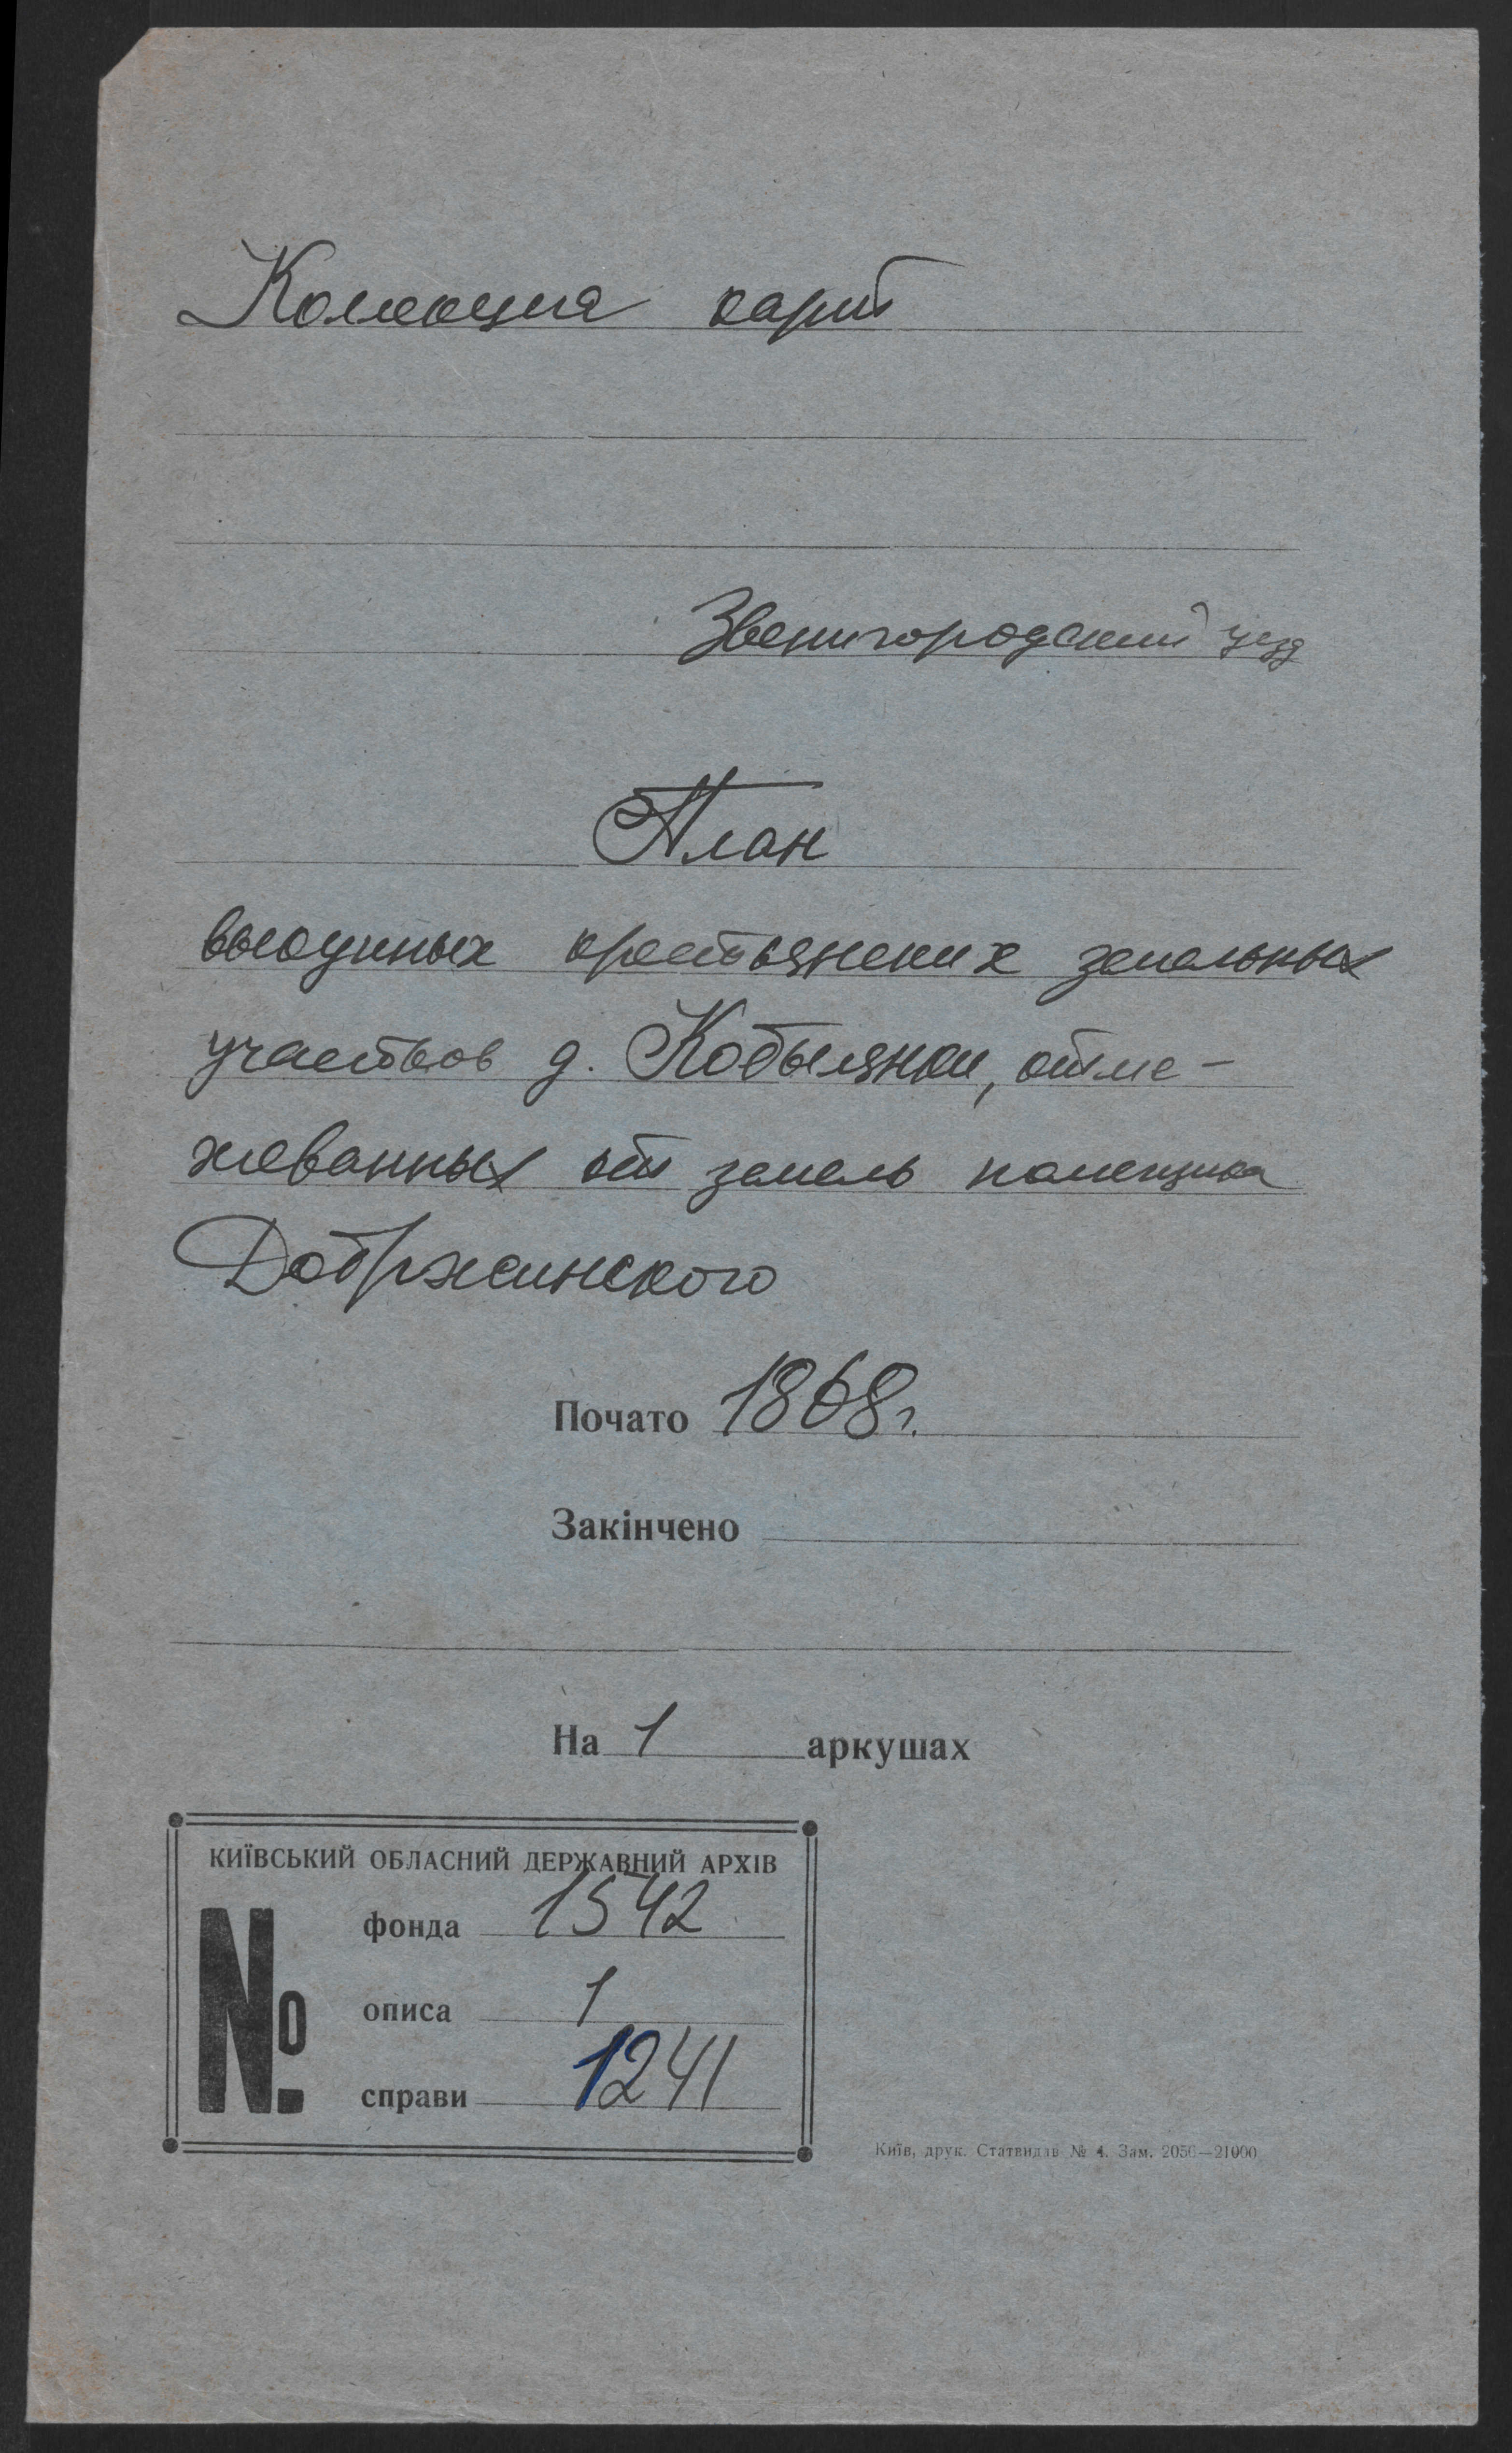 Коллекция карт
Звенигородский уезд
План
выкупных крестьянских земельных
участков д. Кобылянки, отме-
жеванных от земель помещика
Добржинского
Почато 1868 г.
Закінчено
На 1 аркушах
КИЇВСЬКИЙ ОБЛАСНИЙ ДЕРЖАВНИЙ АРХІВ
№ фонда 1542
описа 1
справи 1241
Київ, друк. Статвидав № 4. Зам. 2050—21000